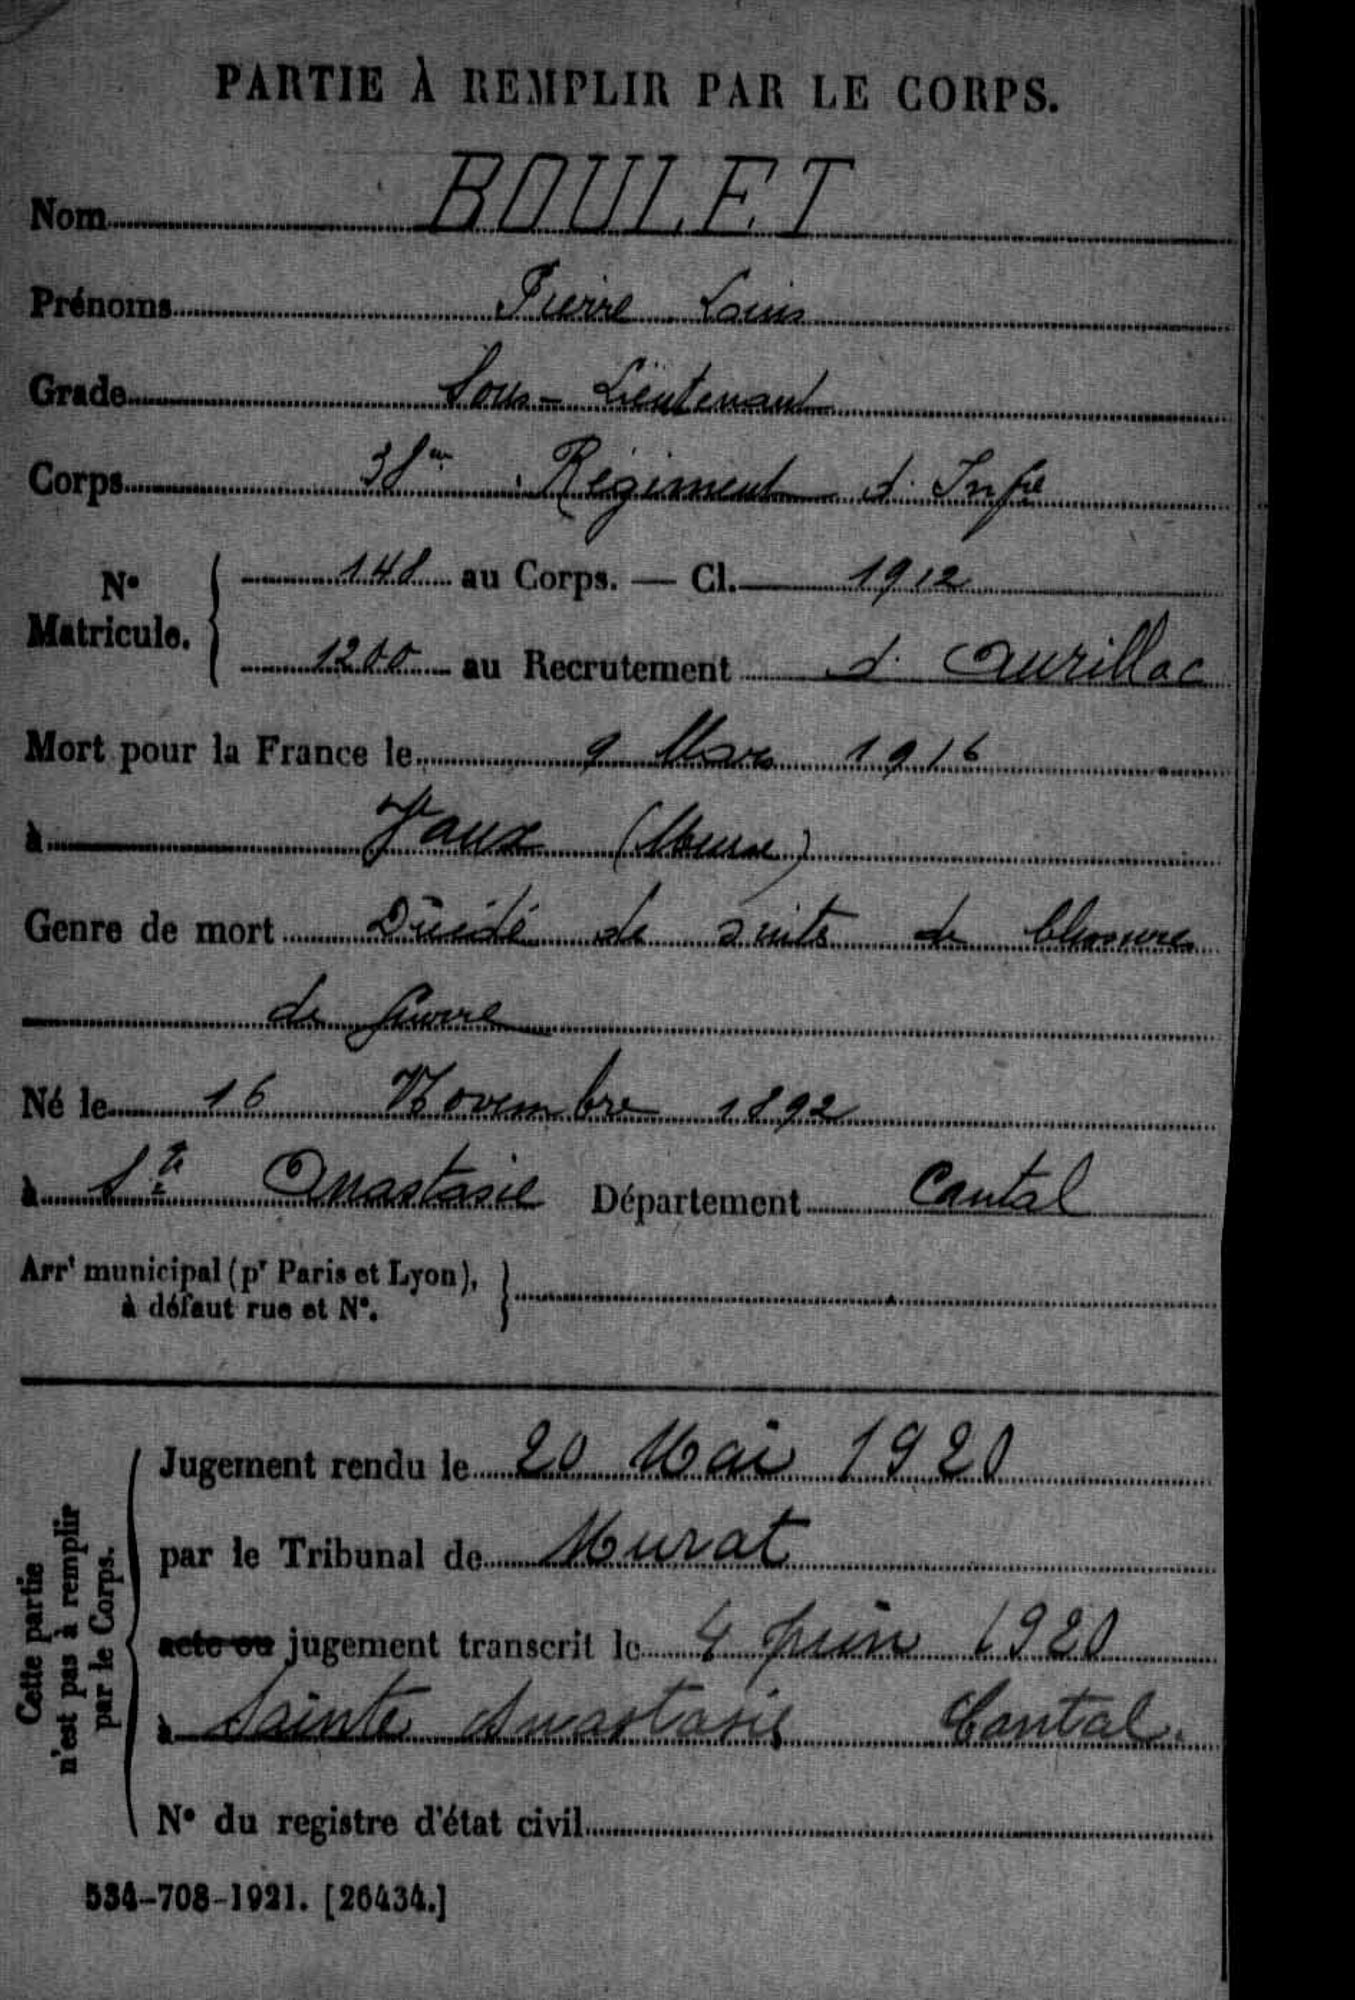 PARTIE À REMPLIR PAR LE CORPS.
Nom BOULET
Prénoms Pierre Louis
Grade Sous-Lieutenant
Corps 38me Régiment d'Infie
N° Matricule. 148 au Corps. — Cl. 1912
1200 au Recrutement d'Aurillac
Mort pour la France le 9 Mars 1916
à Vaux (Meuse)
Genre de mort Décédé de suite de blessures
de Guerre
Né le 16 Novembre 1892
à Ste Anastasie Département Cantal
Arrt municipal (pr Paris et Lyon),
à défaut rue et N°.
Cette partie
n'est pas à remplir
par le Corps.
Jugement rendu le 20 Mai 1920
par le Tribunal de Murat
acte ou jugement transcrit le 4 juin 1920
à Sainte Anastasie Cantal.
N° du registre d'état civil
534-708-1921. [26434.]